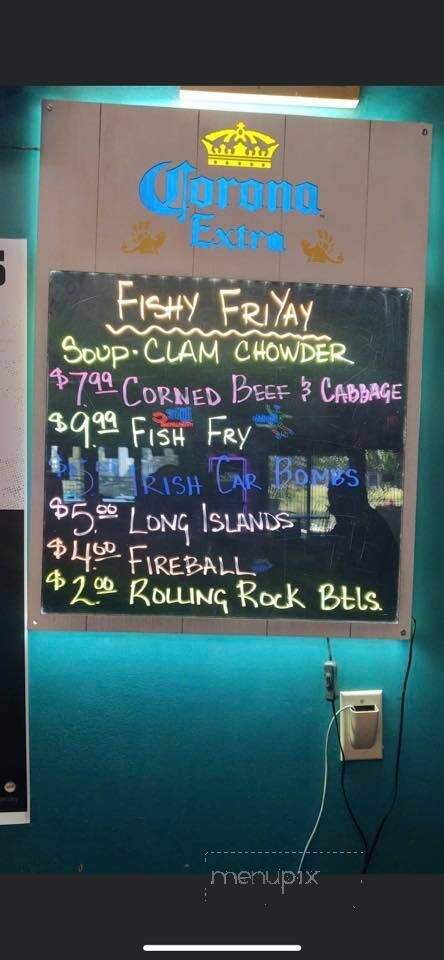 Corona
Extra
FISHY FRIYAY
SOUP · CLAM CHOWDER
$7.99 CORNED BEEF & CABBAGE
$9.99 FISH FRY
IRISH CAR BOMBS
$5.00 LONG ISLANDS
$4.00 FIREBALL
$2.00 ROLLING ROCK Btls.
menupix